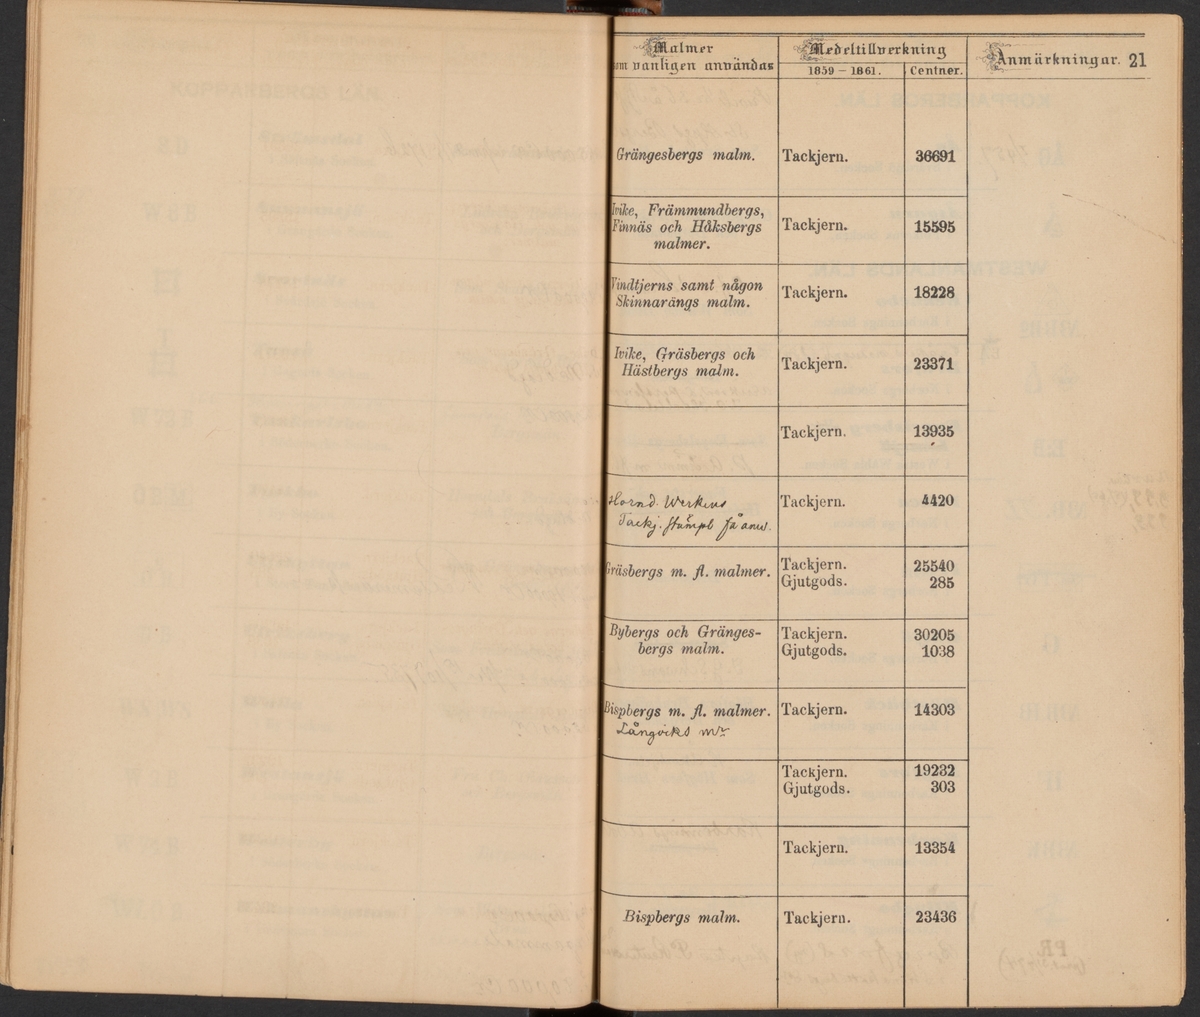 Malmer
som vanligen användas
Medeltillverkning
1859 – 1861. Centner.
Anmärkningar. 21
Grängesbergs malm. Tackjern. 36691
Ivike, Främmundbergs,
Finnäs och Håksbergs
malmer.
Tackjern. 15595
Vindtjerns samt någon
Skinnarängs malm.
Tackjern. 18228
Ivike, Gräsbergs och
Hästbergs malm.
Tackjern. 23371
Tackjern. 13935
Hornd. Werkens
Tackj. stämpl
Tackjern. 4420
Gräsbergs m. fl. malmer.
Tackjern. 25540
Gjutgods. 285
Bybergs och Gränges-
bergs malm.
Tackjern. 30205
Gjutgods. 1038
Bispbergs m. fl. malmer. Tackjern. 14303
Långviks
Tackjern. 19232
Gjutgods. 303
Tackjern. 13354
Bispbergs malm. Tackjern. 23436